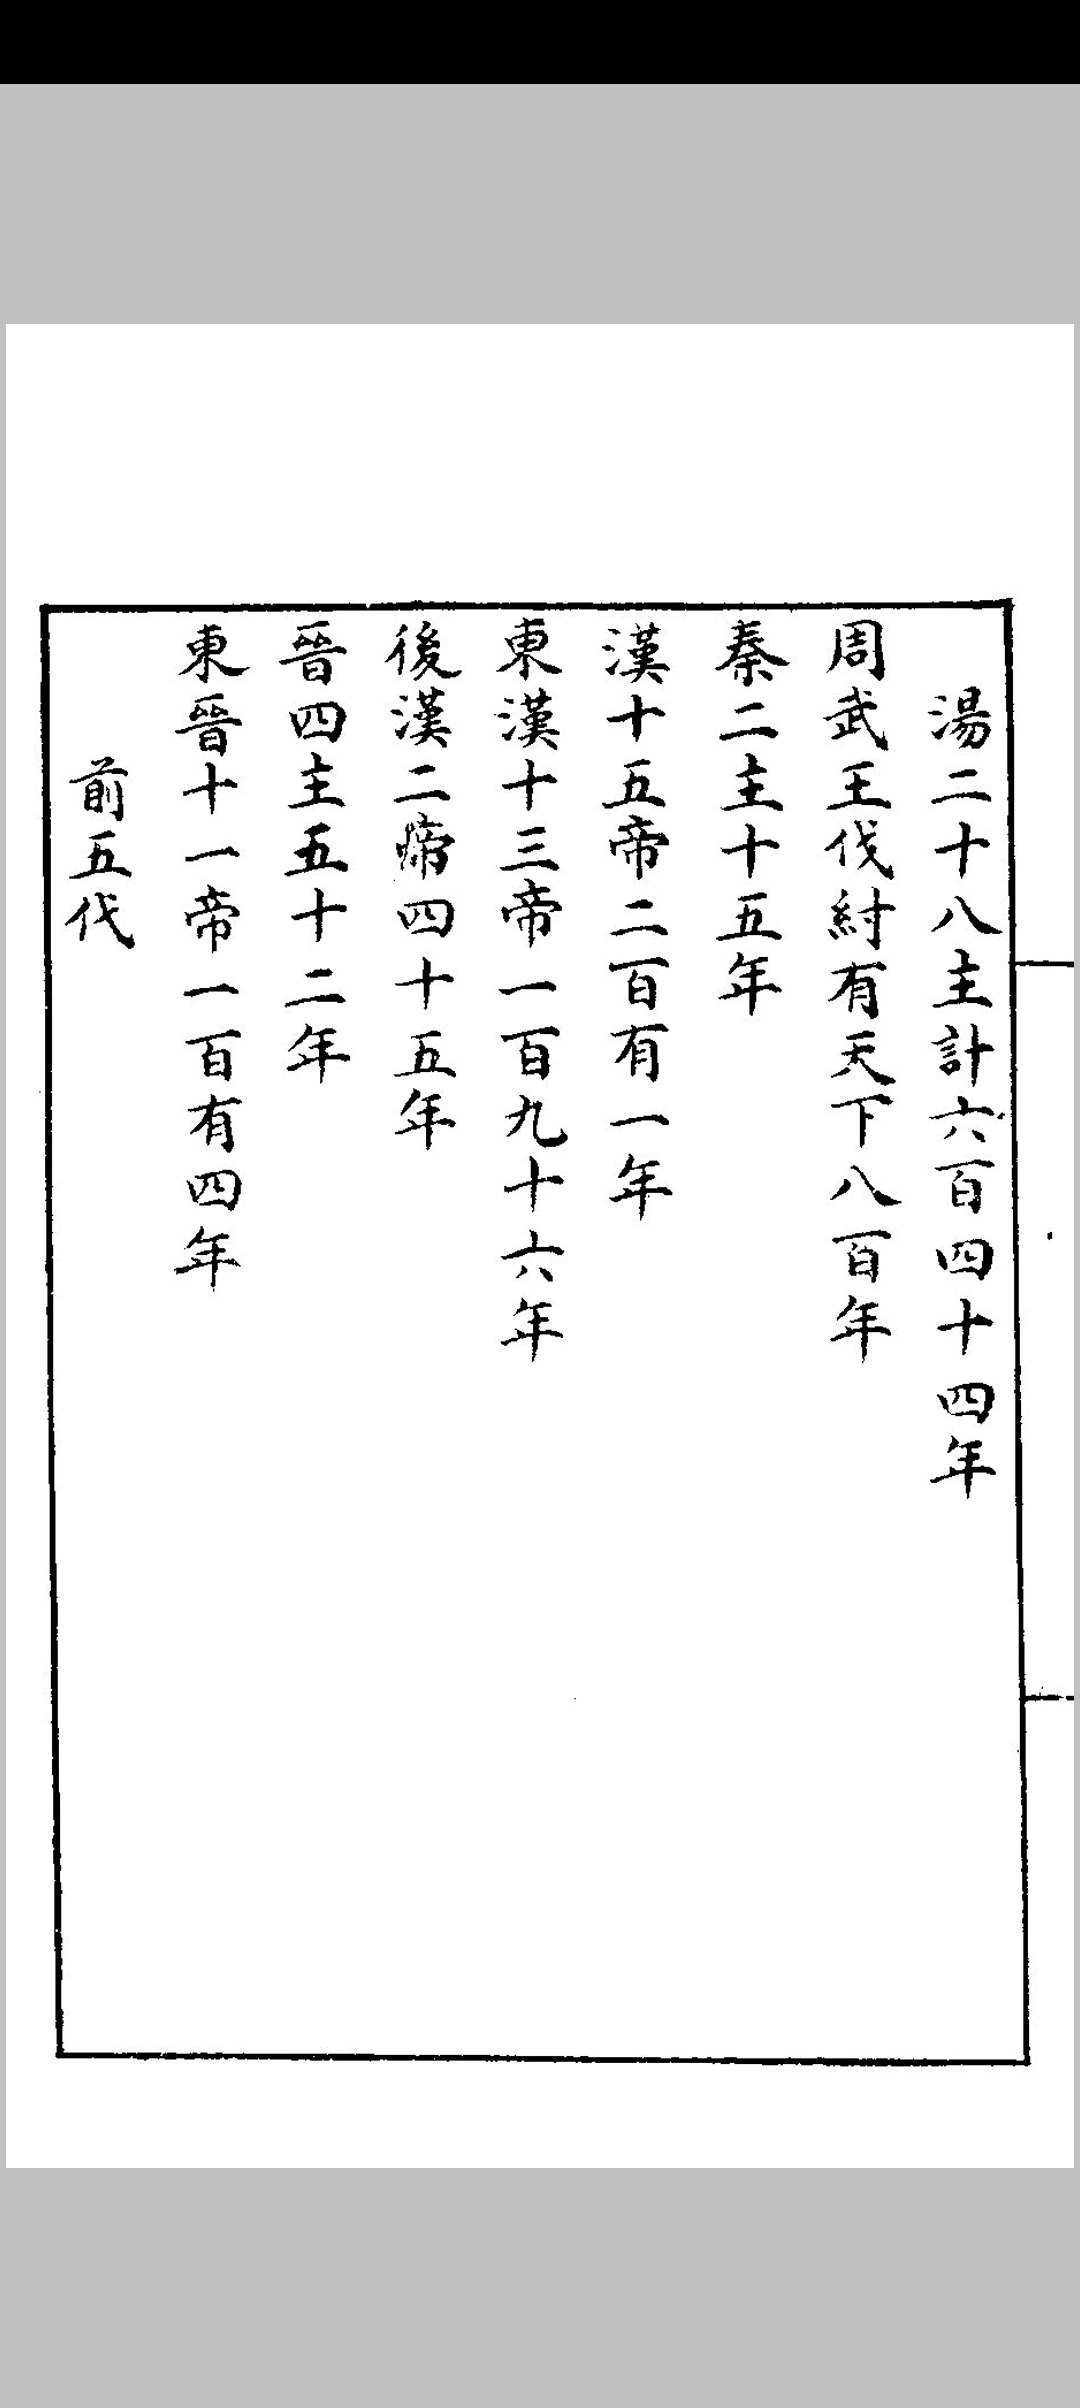 湯二十八主計六百四十四年
周武王伐紂有天下八百年
秦二主十五年
漢十五帝二百有一年
東漢十三帝一百九十六年
後漢二帝四十五年
晉四主五十二年
東晉十一帝一百有四年
前五代